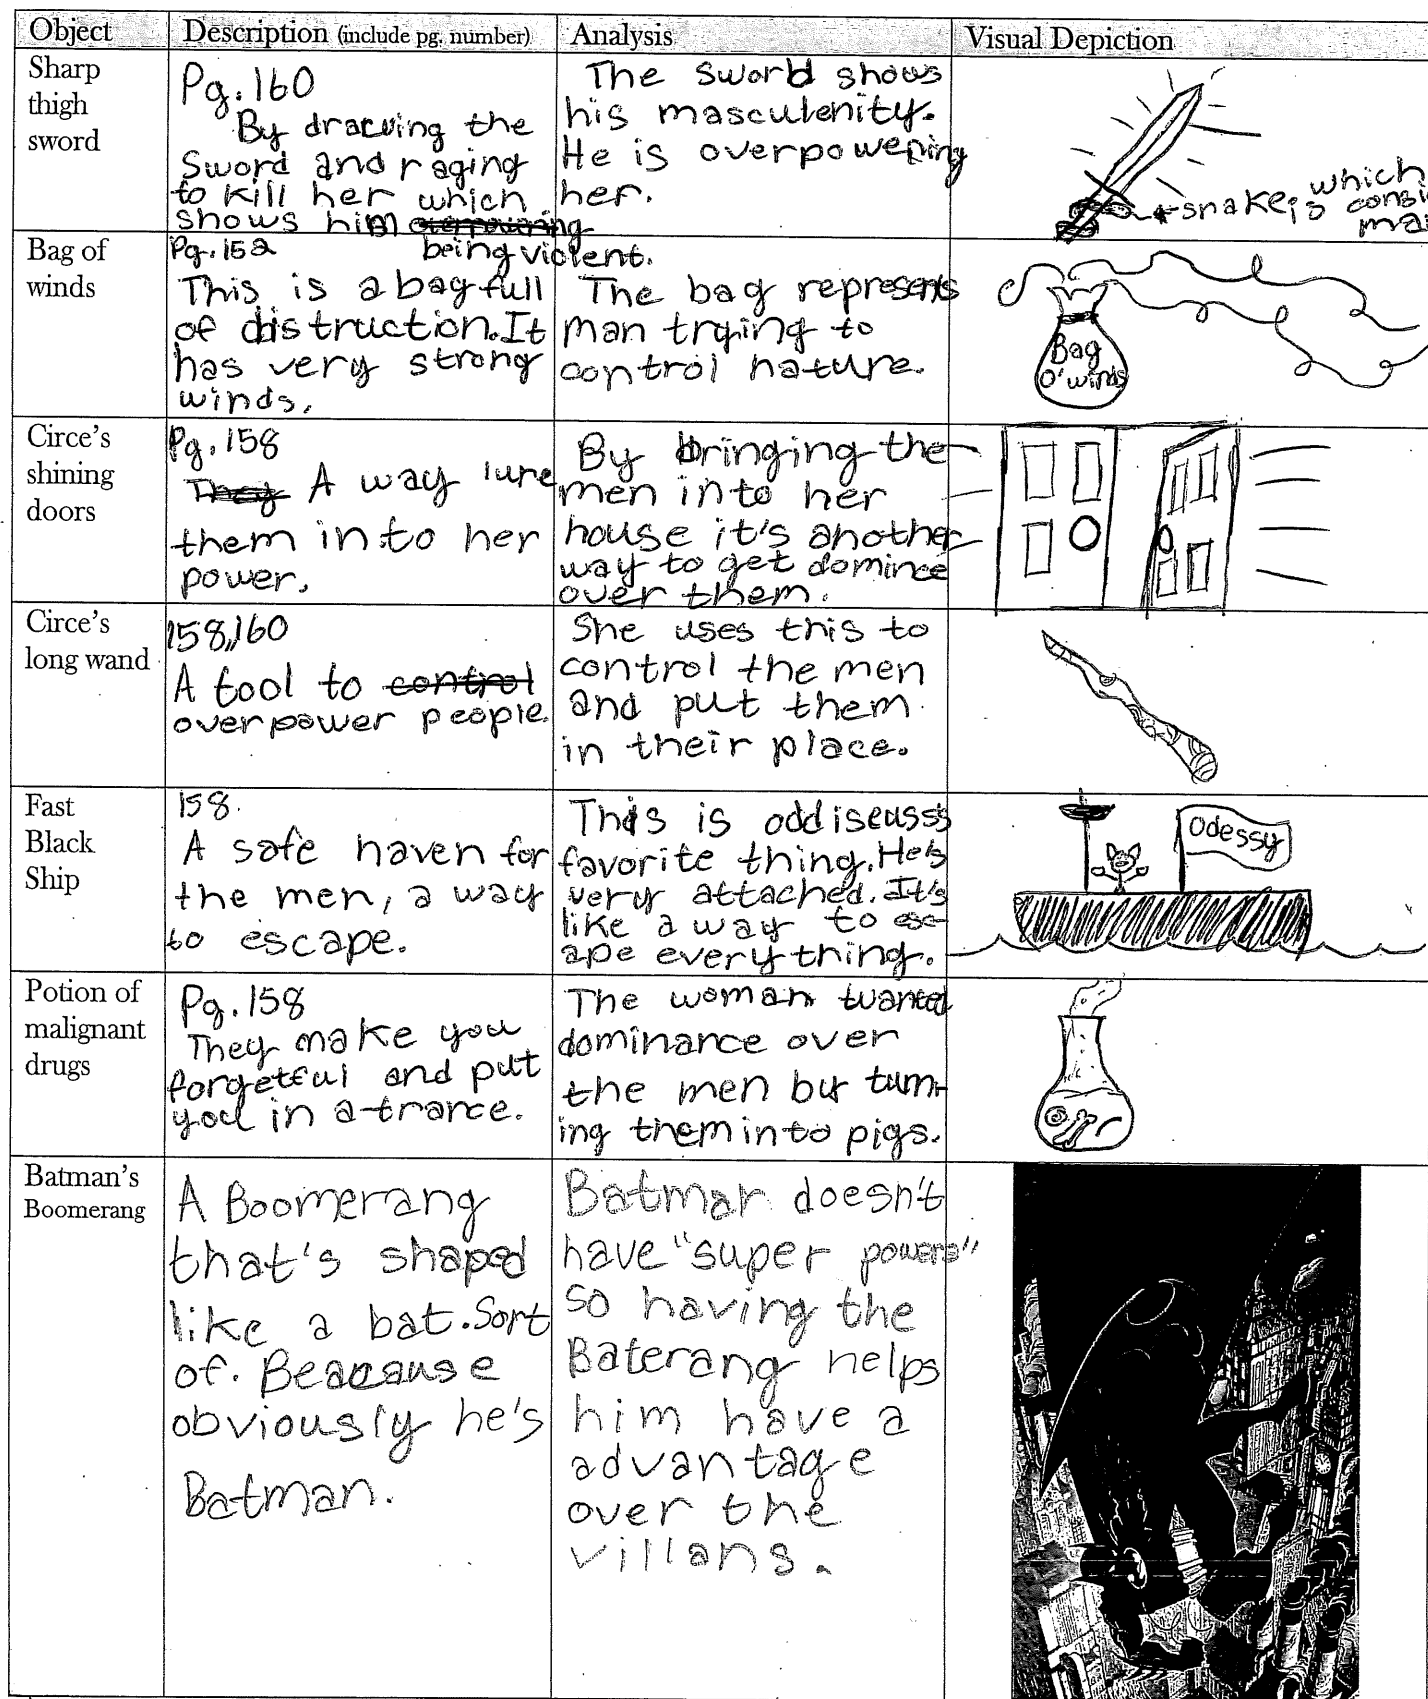 Object Description (include pg. number) Analysis Visual Depiction
Sharp
thigh
sword
Pg. 160
By drawing the
Sword and raging
to kill her which
shows him
being violent.
The Sword shows
his masculenity.
He is overpowering
her.
snake, which
is consi
ma
Bag of
winds
Pg. 152
This is a bag full
of distruction. It
has very strong
winds.
The bag represents
man trying to
control nature.
Bag
O' winds
Circe's
shining
doors
Pg. 158
They A way lure
them into her
power.
By bringing the
men into her
house it's another
way to get domince
over them.
Circe's
long wand
158, 160
A tool to control
overpower people.
She uses this to
control the men
and put them
in their place.
Fast
Black
Ship
158
A safe haven for
the men, a way
to escape.
This is oddiseuss's
favorite thing. He's
very attached. It's
like a way to esc-
ape everything.
Odessy
Potion of
malignant
drugs
Pg. 158
They make you
forgetful and put
you in a trance.
The woman wanted
dominance over
the men by turn-
ing them into pigs.
Batman's
Boomerang
A Boomerang
that's shaped
like a bat. Sort
of. Beacause
obviously he's
Batman.
Batman doesn't
have "super powers"
so having the
Baterang helps
him have a
advantage
over the
villans.